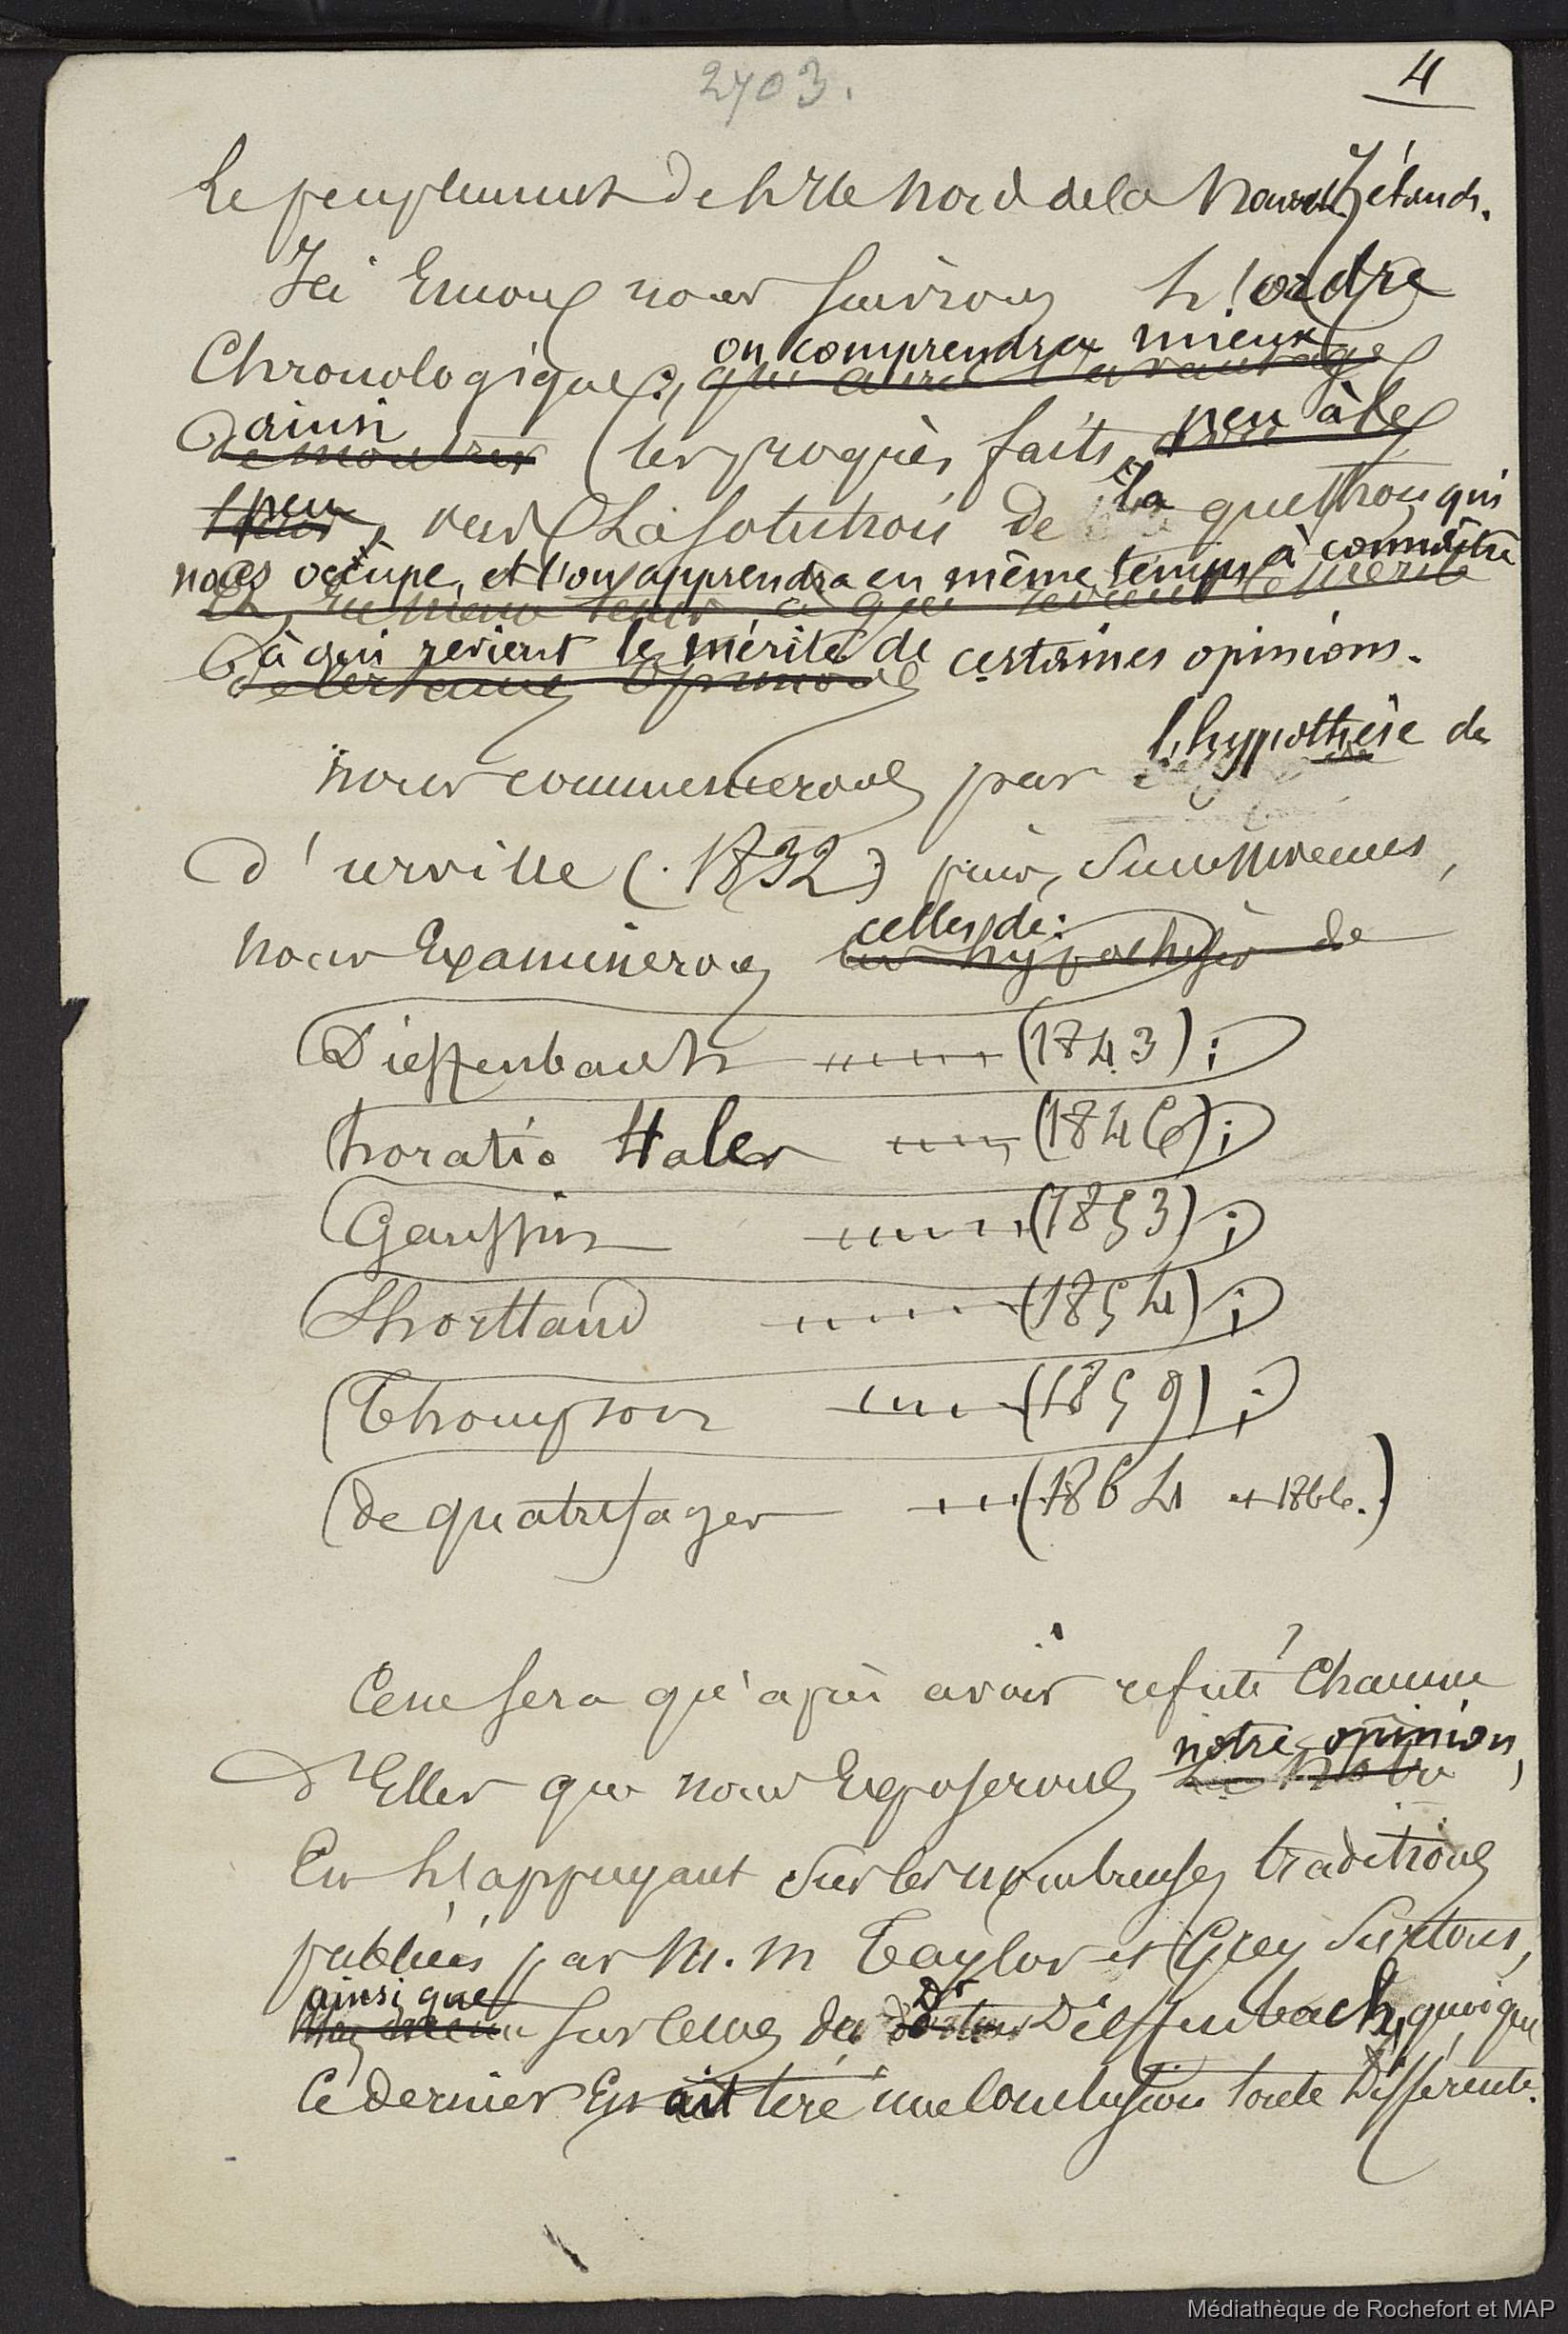 2703.
4
Le peuplement de l'Ile Nord de la Nouv. Zélande.
Ici Encore nous suivrons l'ordre
Chronologique: on comprendra mieux
qui aura l'avantage
ainsi
de montrer les progrès faits peu à
peu, vers la solution de la question qui
nous occupe, et l'on apprendra en même temps à connaître
à qui revient le mérite
à qui revient le mérite de certaines opinions.
de certaines opinions
nous commencerons par l'hypothèse de
d'urville (1832) puis, Successivement,
nous Examinerons celles de:
les hypothèses de
Dieffenbach (1843);
horatio Hales (1846);
Gaussin (1853);
Shortland (1854);
Thompson (1859);
de quatrefages (1864 et 1866.)
Ce ne sera qu'après avoir refuté Chacune
d'Elles que nous Exposerons notre opinion,
la nôtre
En l'appuyant Sur les nombreuses traditions
publiées par M. M Taylor et Grey Surtout,
ainsi que sur celles du Dr Dieffenbach, quoique
docteur
Ce dernier En ait tiré une Conclusion toute Différente.
Médiathèque de Rochefort et MAP